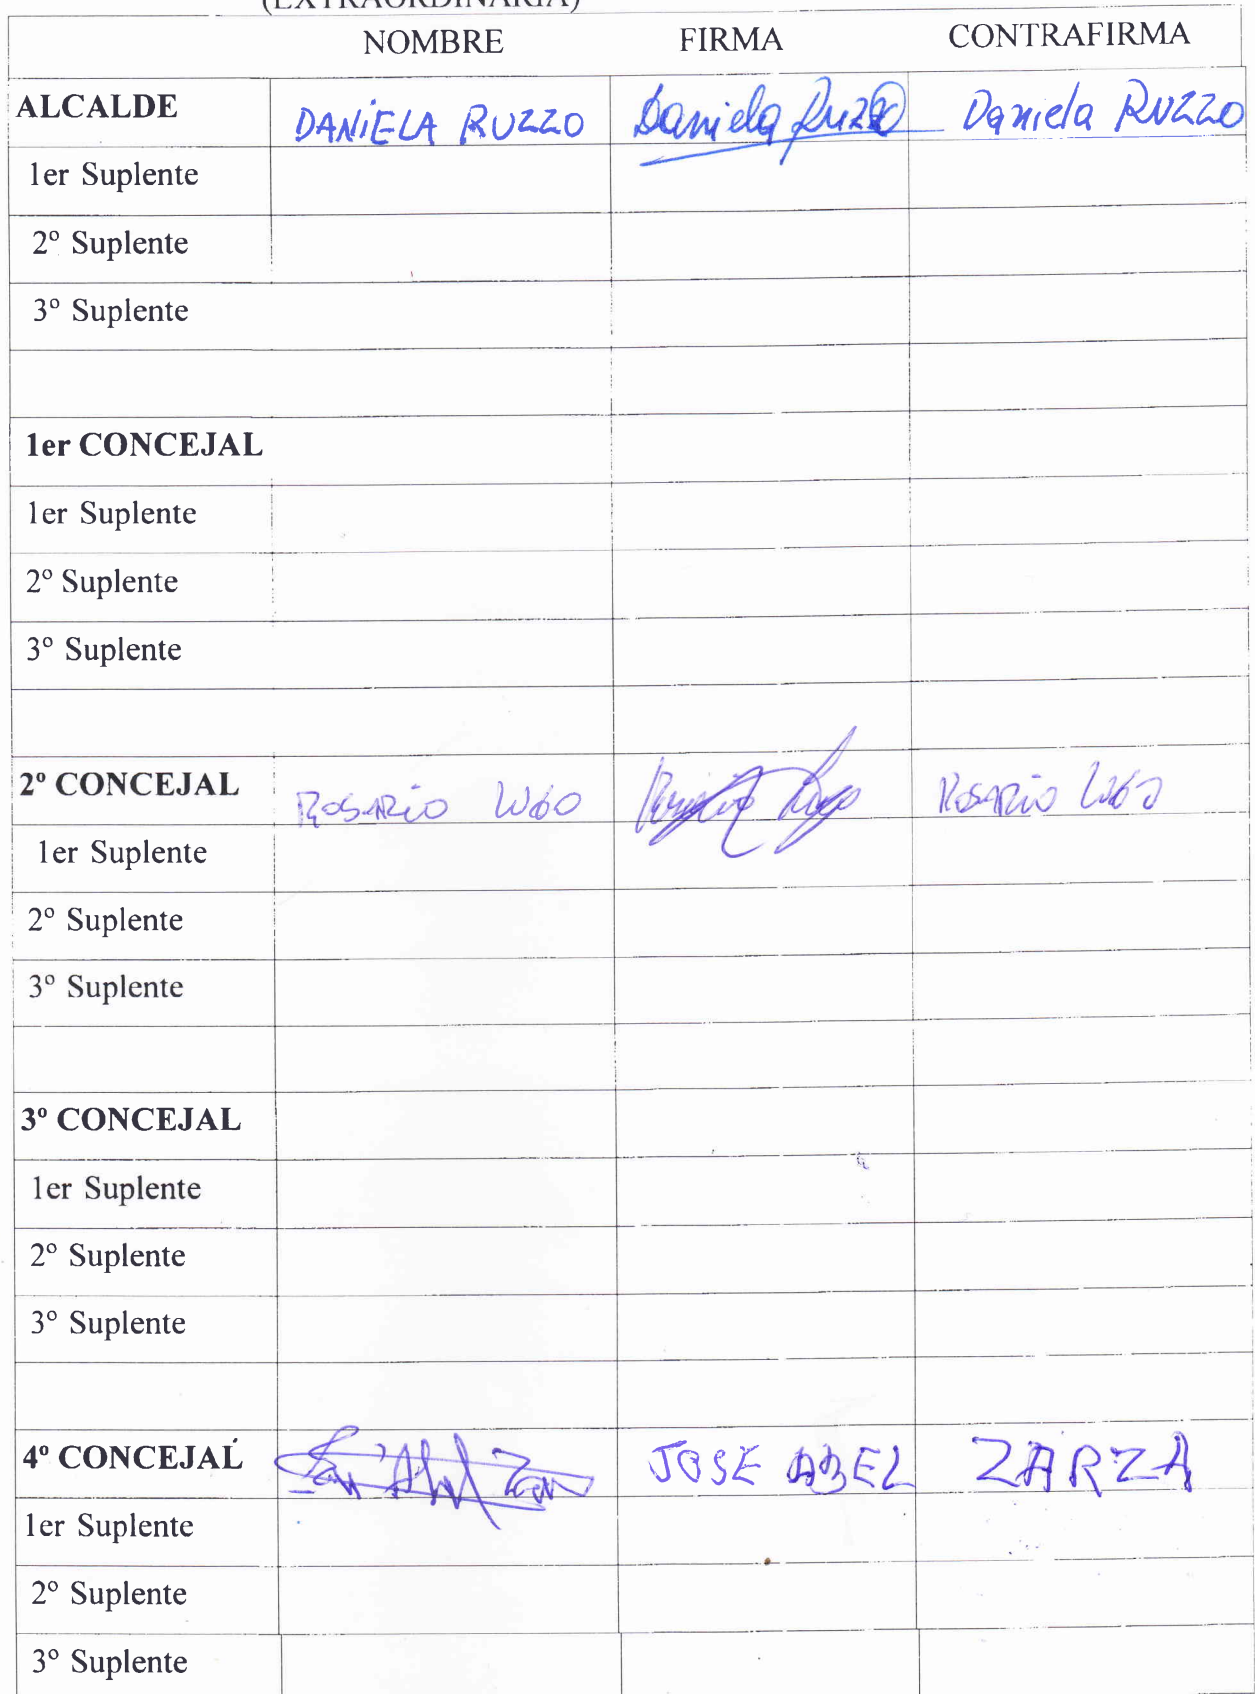 (EXTRAORDINARIA)
NOMBRE FIRMA CONTRAFIRMA
ALCALDE DANiELA RUZZO Daniela Ruzzo Daniela RUZZO
1er Suplente
2º Suplente
3º Suplente
1er CONCEJAL
1er Suplente
2º Suplente
3º Suplente
2º CONCEJAL ROSARiO LUGO ROSARiO LUGO
1er Suplente
2º Suplente
3º Suplente
3º CONCEJAL
1er Suplente
2º Suplente
3º Suplente
4º CONCEJAL JOSE ABEL ZARZA
1er Suplente
2º Suplente
3º Suplente